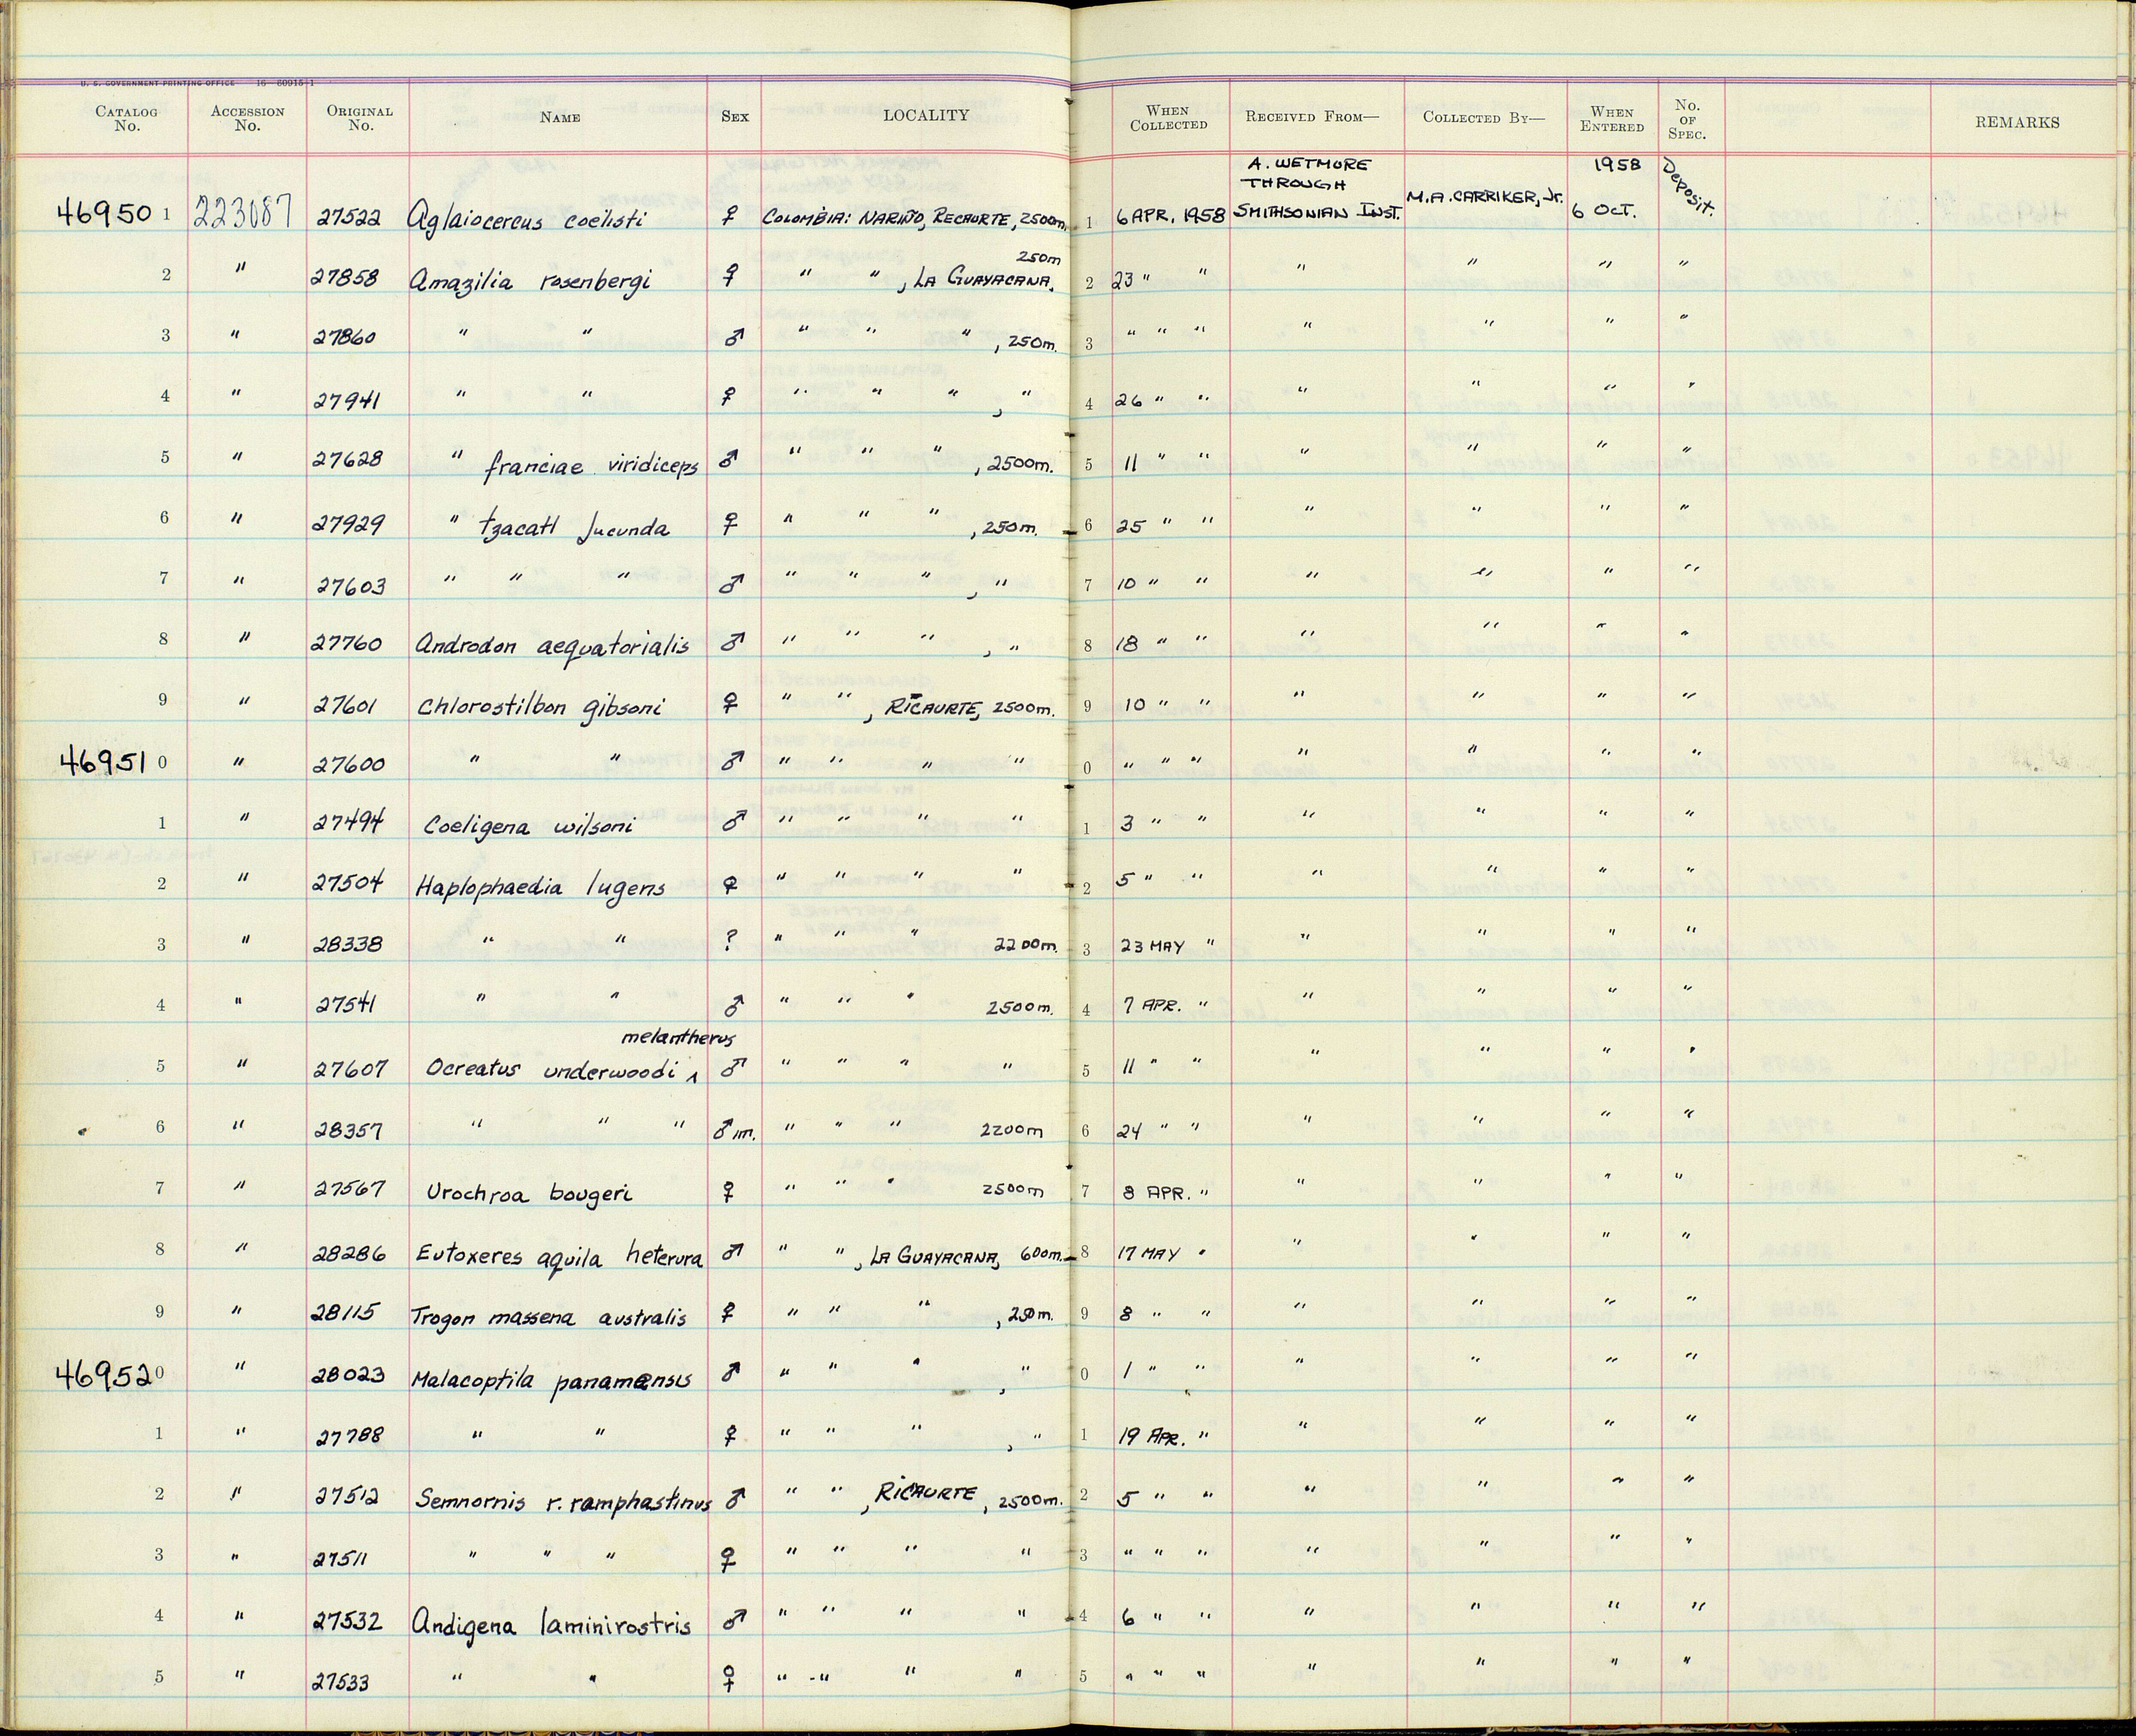 U. S. GOVERNMENT PRINTING OFFICE 16—60915-1
CATALOG No. ACCESSION No. ORIGINAL No. NAME SEX LOCALITY WHEN COLLECTED RECEIVED FROM— COLLECTED BY— WHEN ENTERED No. OF SPEC. REMARKS
46950 1 223087 27522 Aglaiocercus coelisti ♀ COLOMBIA: NARIÑO, RECAURTE, 2500m. 1 6 APR, 1958 A. WETMORE THROUGH SMITHSONIAN INST. M.A. CARRIKER, Jr. 1958 6 OCT. Deposit.
2 " 27858 Amazilia rosenbergi ♀ " " , LA GUAYACANA, 250m 2 23 " " " " " "
3 " 27860 " " ♂ " " " , 250m. 3 " " " " " " "
4 " 27941 " " ♀ " " " , " 4 26 " " " " " "
5 " 27628 " franciae viridiceps ♂ " " " , 2500m. 5 11 " " " " " "
6 " 27929 " tzacatl Jucunda ♀ " " " , 250m. 6 25 " " " " " "
7 " 27603 " " " ♂ " " " , " 7 10 " " " " " "
8 " 27760 Androdon aequatorialis ♂ " " " , " 8 18 " " " " " "
9 " 27601 Chlorostilbon gibsoni ♀ " " , RICAURTE, 2500m. 9 10 " " " " " "
46951 0 " 27600 " " ♂ " " " " 0 " " " " " " "
1 " 27494 Coeligena wilsoni ♂ " " " " 1 3 " " " " " "
2 " 27504 Haplophaedia lugens ♀ " " " " 2 5 " " " " " "
3 " 28338 " " ? " " " 2200m. 3 23 MAY " " " " "
4 " 27541 " " ♂ " " " 2500m. 4 7 APR. " " " " "
5 " 27607 Ocreatus underwoodi ^ melantherus ♂ " " " " 5 11 " " " " " "
6 " 28357 " " " ♂ im. " " " 2200m 6 24 " " " " " "
7 " 27567 Urochroa bougeri ♀ " " " 2500m 7 8 APR. " " " " "
8 " 28286 Eutoxeres aquila heterura ♂ " " , LA GUAYACANA, 600m. 8 17 MAY " " " " "
9 " 28115 Trogon massena australis ♀ " " " , 250m. 9 8 " " " " " "
46952 0 " 28023 Malacoptila panamensis ♂ " " " , " 0 1 " " " " " "
1 " 27788 " " ♀ " " " , " 1 19 APR. " " " " "
2 " 27512 Semnornis r. ramphastinus ♂ " " , RICAURTE , 2500m. 2 5 " " " " " "
3 " 27511 " " " ♀ " " " " 3 " " " " " " "
4 " 27532 Andigena laminirostris ♂ " " " " 4 6 " " " " " "
5 " 27533 " " ♀ " " " " 5 " " " " " " "